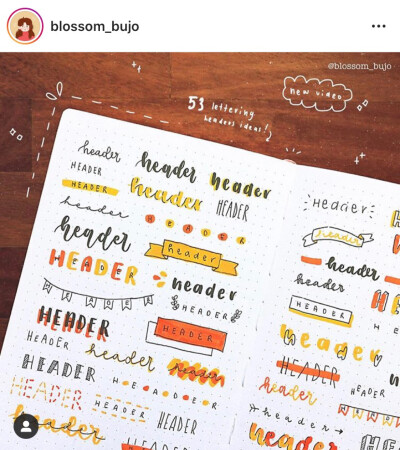 blossom_bujo
@blossom_bujo
new video
53 lettering
headers ideas!
header
header
header
HEADER
HEADER
header
HEADER
header
HEADER
header
header
HEADER
header
HEADER
HEADER
header
HEADER
HEADER
HEADER
header
header
HEADER
HEADER
HEADER
HEADER
header
HEADER
header
header
header
header
HEADER
header
HEADER
header
HEADER
header
header